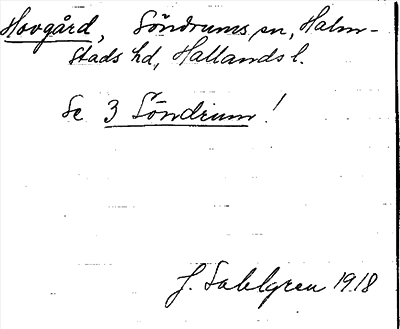 Hovgård, Söndrums sn, Halm-
stads hd, Hallands l.
Se 3 Söndrum!
J. Sahlgren 1918